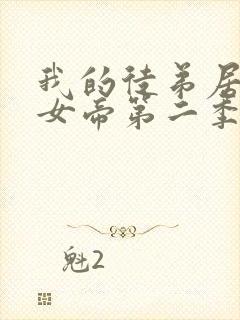 我的徒弟居
女帝第二季
魁2